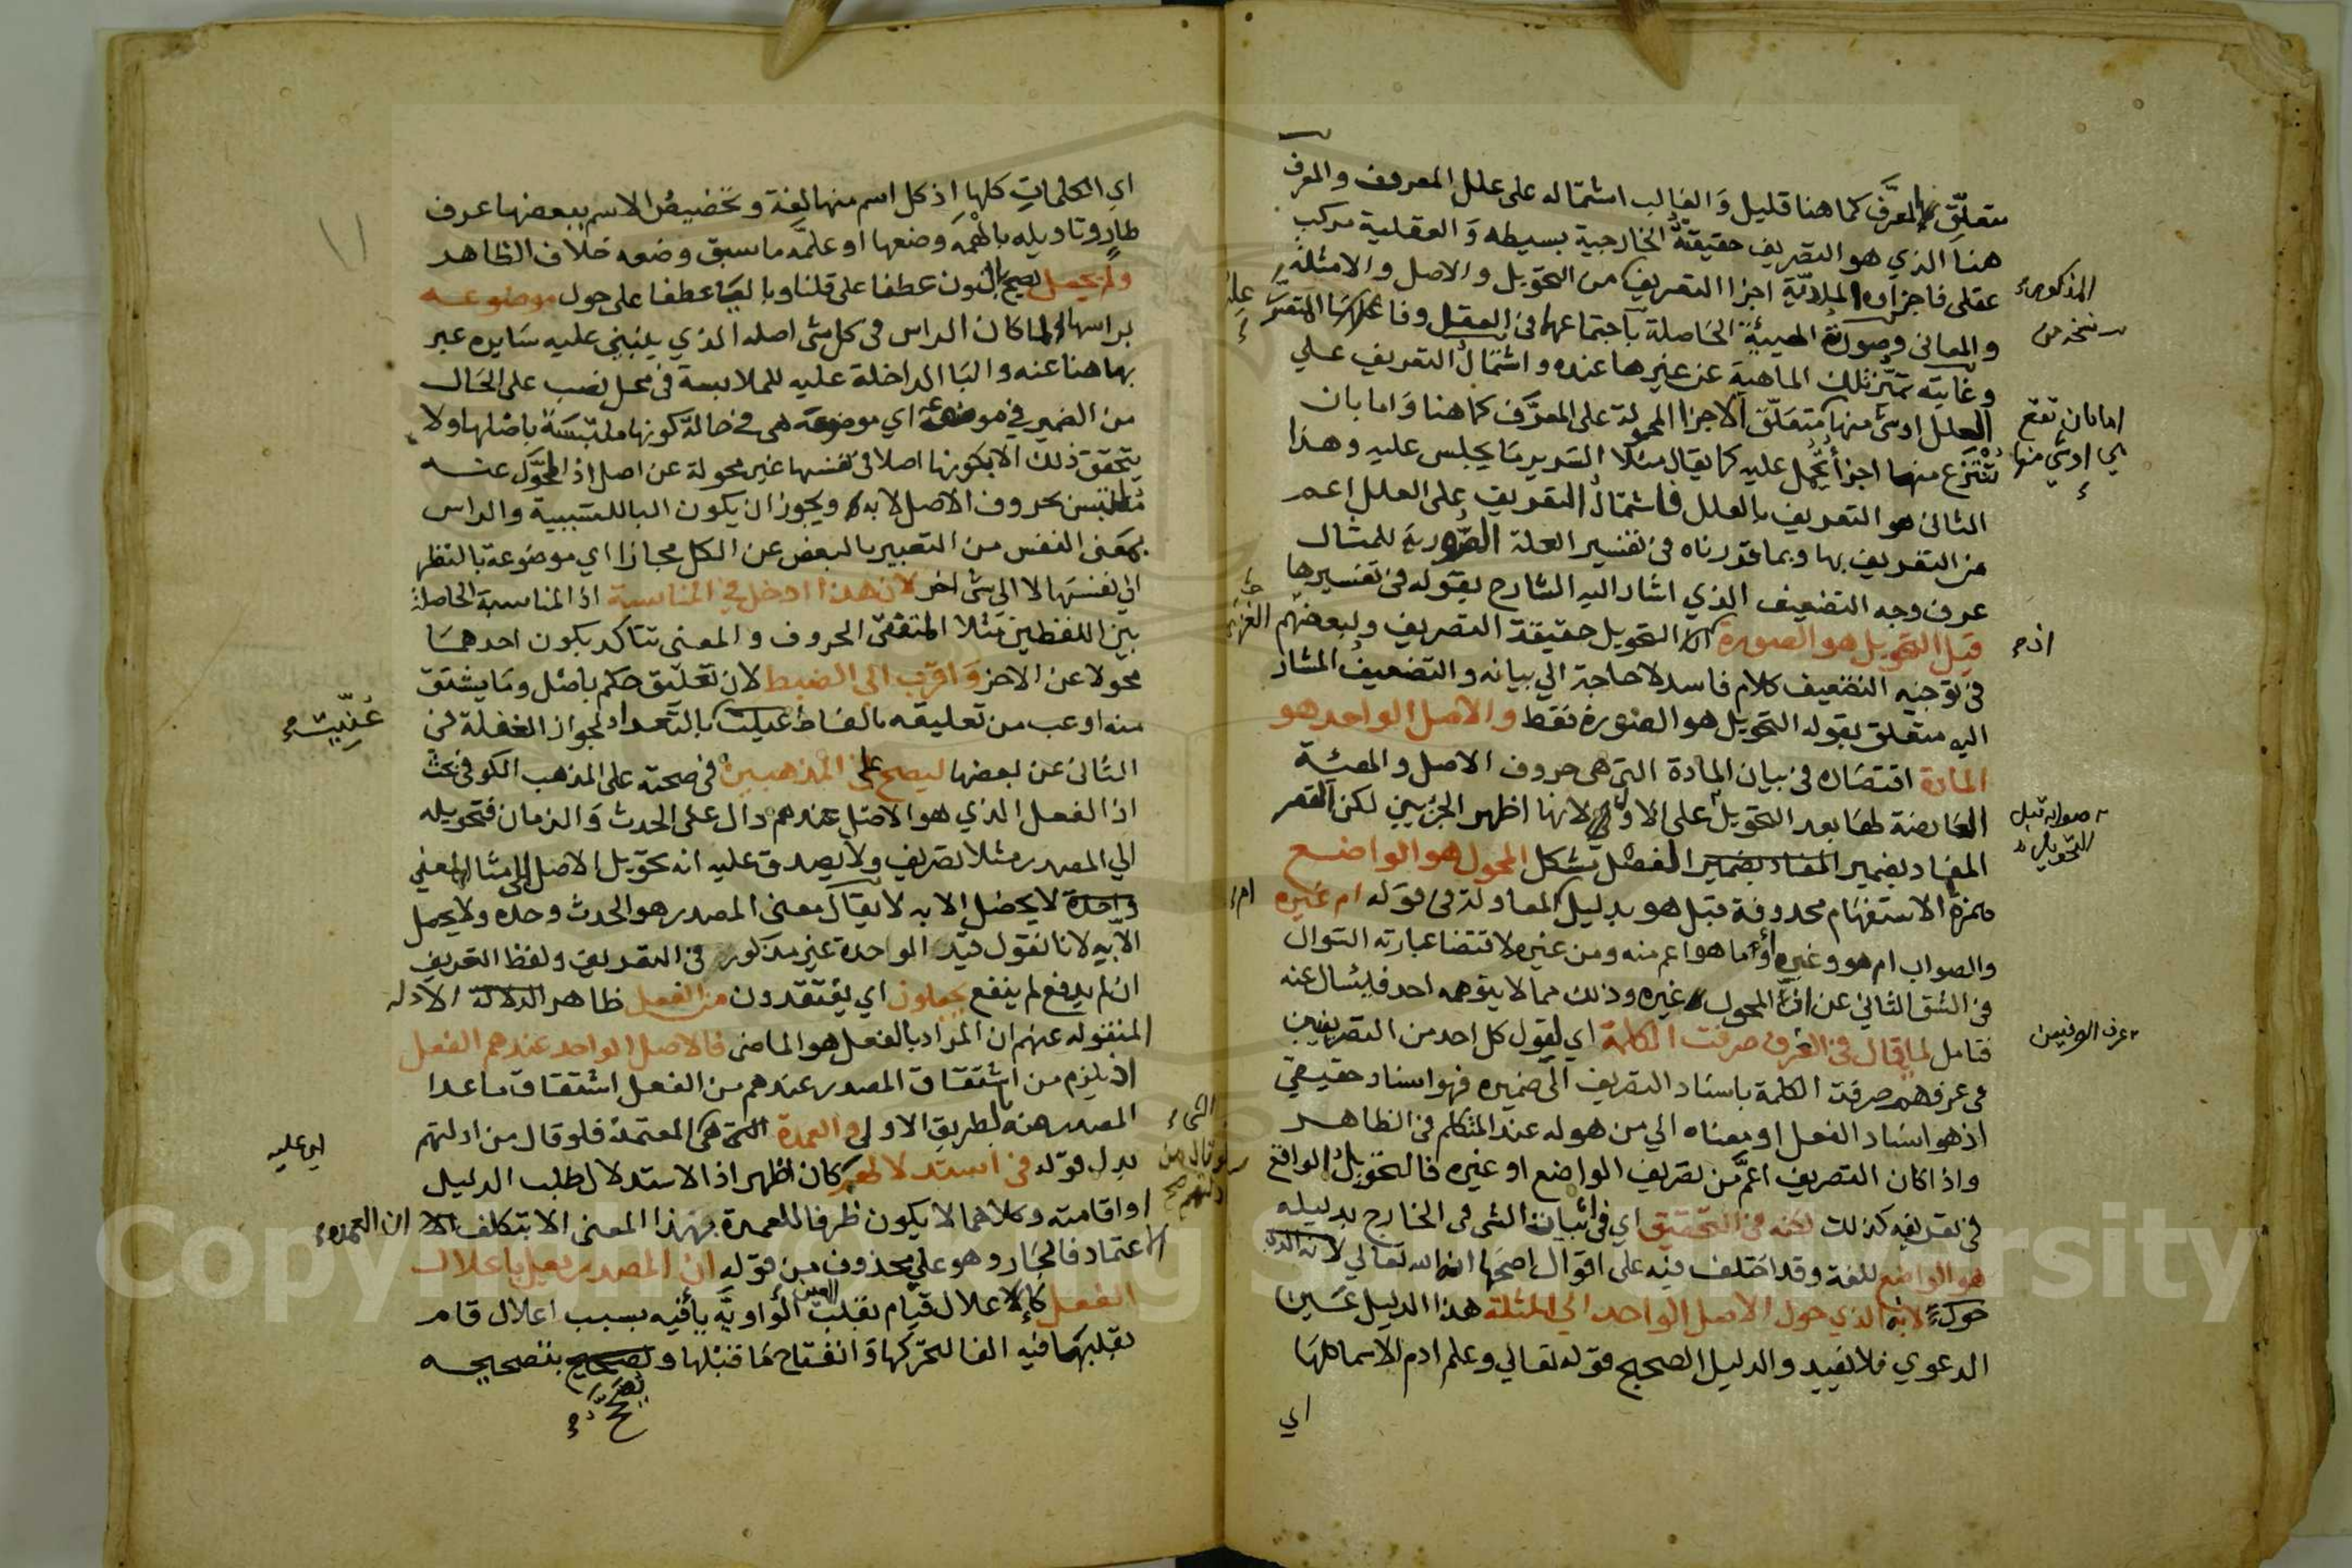 متعلق بالمعرَّف كما هنا قليل وَالغالب اشتماله على علل المعروف والمعرف
هنا الذي هو التصريف حقيقة الخارجية بسيطه وَ العقلية مركب
عقلى فاجزاه المادّيّة اجزا التعريف من التحويل والاصل والامثلة
والمعانى وصورته الهيئة الحَاصلة باجتماعها فى العقل وفاعلها المتصرف
وغايته تميّز تلك الماهية عن غيرها عنده واشتمال التعريف على
العلل اوشى منها متعلّق الاجزا المحمولة على المعرَّف كما هنا وَاما بان
تنتزع منها اجزا تُحمل عليه كما يقال مثلا السرير مَا يجلس عليه وهذا
الثانى هو التعريف بالعلل فاشتمال التعريف على العلل اعم
من التعريف بها وبما قدرناه فى تفسير العلة الصورية للمثال
عرف وجه التضعيف الذي اشار اليه الشارح بقوله فى تفسيرها
قيل التحويل هو الصورة التحويل حقيقة التصريف ولبعضهم
فى توجيه التضعيف كلام فاسد لا حاجة الي بيانه والتضعيف المشار
اليه متعلق بقوله التحويل هو الصورة فقط والاصل الواحد هو
المادة اقتصاره فى بيان المادة التى هى حروف الاصل والهيئة
العَارضة لهَا بعد التحويل على الاولى لانها اظهر الجزيين لكن القصر
المفاد بضمير المفاد بضمير الفصل تشكل المحول هو الواضع
همزة الاستفهام محذوفة قبل هو بدليل المعادلة فى قوله ام غيره
والصواب ام هو وغيره او ما هو اعم منه ومن غيره لاقتضا عبارته السوال
فى الشق الثاني عن المحول غيره وذلك مما لا يتوهمه احد فليسال عنه
فتامل لما يقال فى العرف صرفت الكلمة اي لقول كل احد من التصريفيين
فى عرفهم صرفت الكلمة باسناد التصريف الى ضميره فهو اسناد حقيقي
اذ هو اسناد الفعل او معناه الي من هو له عند المتكلم فى الظاهر
واذا كان التصريف اعمَّ من تصريف الواضع او غيره فالتحويل الواقع
فى تعريفه كذلك لكنه فى التحقيق اي فى اثبات الشى فى الخارج بدليله
هو الواضع للغة وقد اختلف فيه على اقوال اصحها انه الله تعالي
لانه الذي حول الاصل الواحد الى امثلة هذا الدليل عَين
الدعوي فلا يفيد والدليل الصحيح قوله تعالي وعلم ادم الاسما كلهَا
اي
المذكورة
اما بان تقع
هي اوشى منها
اذ
صوابه قبل
التحويل
ام
عرف الصرفيين
اي الكلماتِ كلها اذ كل اسم منها لغة وتخصيص الاسم ببعضها عرف
طارٍ وتاويله بالهمَهَ وضعها او علمَّه ما سبق وضعه خلاف الظاهر
ولم يجعل يصح بالنون عطفا على قلنا وباليَا عطفا على حول موضوعه
براسها لما كان الراس فى كل شى اصله الذي ينبني عليه سَايره عبر
بها هنا عنه والبَا الداخلة عليه للملابسة فى محل نصب على الحَال
من الضمير في موضوعة اي موضوعه هى فى حالة كونها ملتبسَة باصْلها ولا
يتحقق ذلك الا بكونها اصلا فى نفسها غير محولة عن اصل اذ المحوَّل عنه
ملتبس بحروف الاصل لا به ويجوز ان يكون البا للسببية والراس
بمعَنى النفس من التعبير بالبعض عن الكل مجازا اي موضوعة بالنظر
الى نفسَها لا الي شى اخر لان هذا ادخل في المناسبة اذ المناسبة الحاصلة
بين اللفظين مَثلا المتفقى الحروف والمعنى تتاكد بكون احدهمَا
محولا عن الاخر وَاقرب الى الضبط لان تعليق حكم باصْل ومَا يشتق
منه اوعب من تعليقه بالفَاظ عيلت بالتعداد لجواز الغفلة فى
الثانى عن بعضها ليصح على المذهبين فى صحته على المذهب الكوفى بحث
اذ الفعل الذي هو الاصل عندهم دال على الحدث وَالزمان فتحويله
الي المصدر مثلا تصريف ولا يصدق عليه انه تحويل الاصل الى مثال لمعنى
واحدة لا يحصل الا به لا يقال معنى المصدر هو الحدث وحده ولا يحصل
الا به لانا نقول قيد الواحدة غير مذكور فى التعريف ولفظ التعريف
ان لم يدفع لم ينفع يجعلون اي يعتقدون من الفعل ظاهر الدلالة الادله
المنقوله عنهم ان المراد بالفعل هو الماضى فالاصل الواحد عندهم الفعل
اذ يلزم من اشتقاق المصدر عندهم من الفعل اشتقاق ماعدا
المصدر منه بالطريق الاولى والعمدة التى هى المعتمدة فلو قال من ادلتهم
بدل قوله فى استدلالهم كان اظهر اذ الاستدلال طلب الدليل
او اقامته وكلاهما لا يكون ظرفا للعمدة بهذا المعنى الا بتكلف الا ان العمدة
الاعتماد فالجَار وهو على محذوف من قوله ان المصدر يعل باعلال
الفعل كالاعلال قيام بقلب الواو يَا فيه بسبب اعلال قام
بقلبها فيه الفا لتحركها وَانفتاح مَا قبلها وتصحيح بتصحيحه
اي عليه